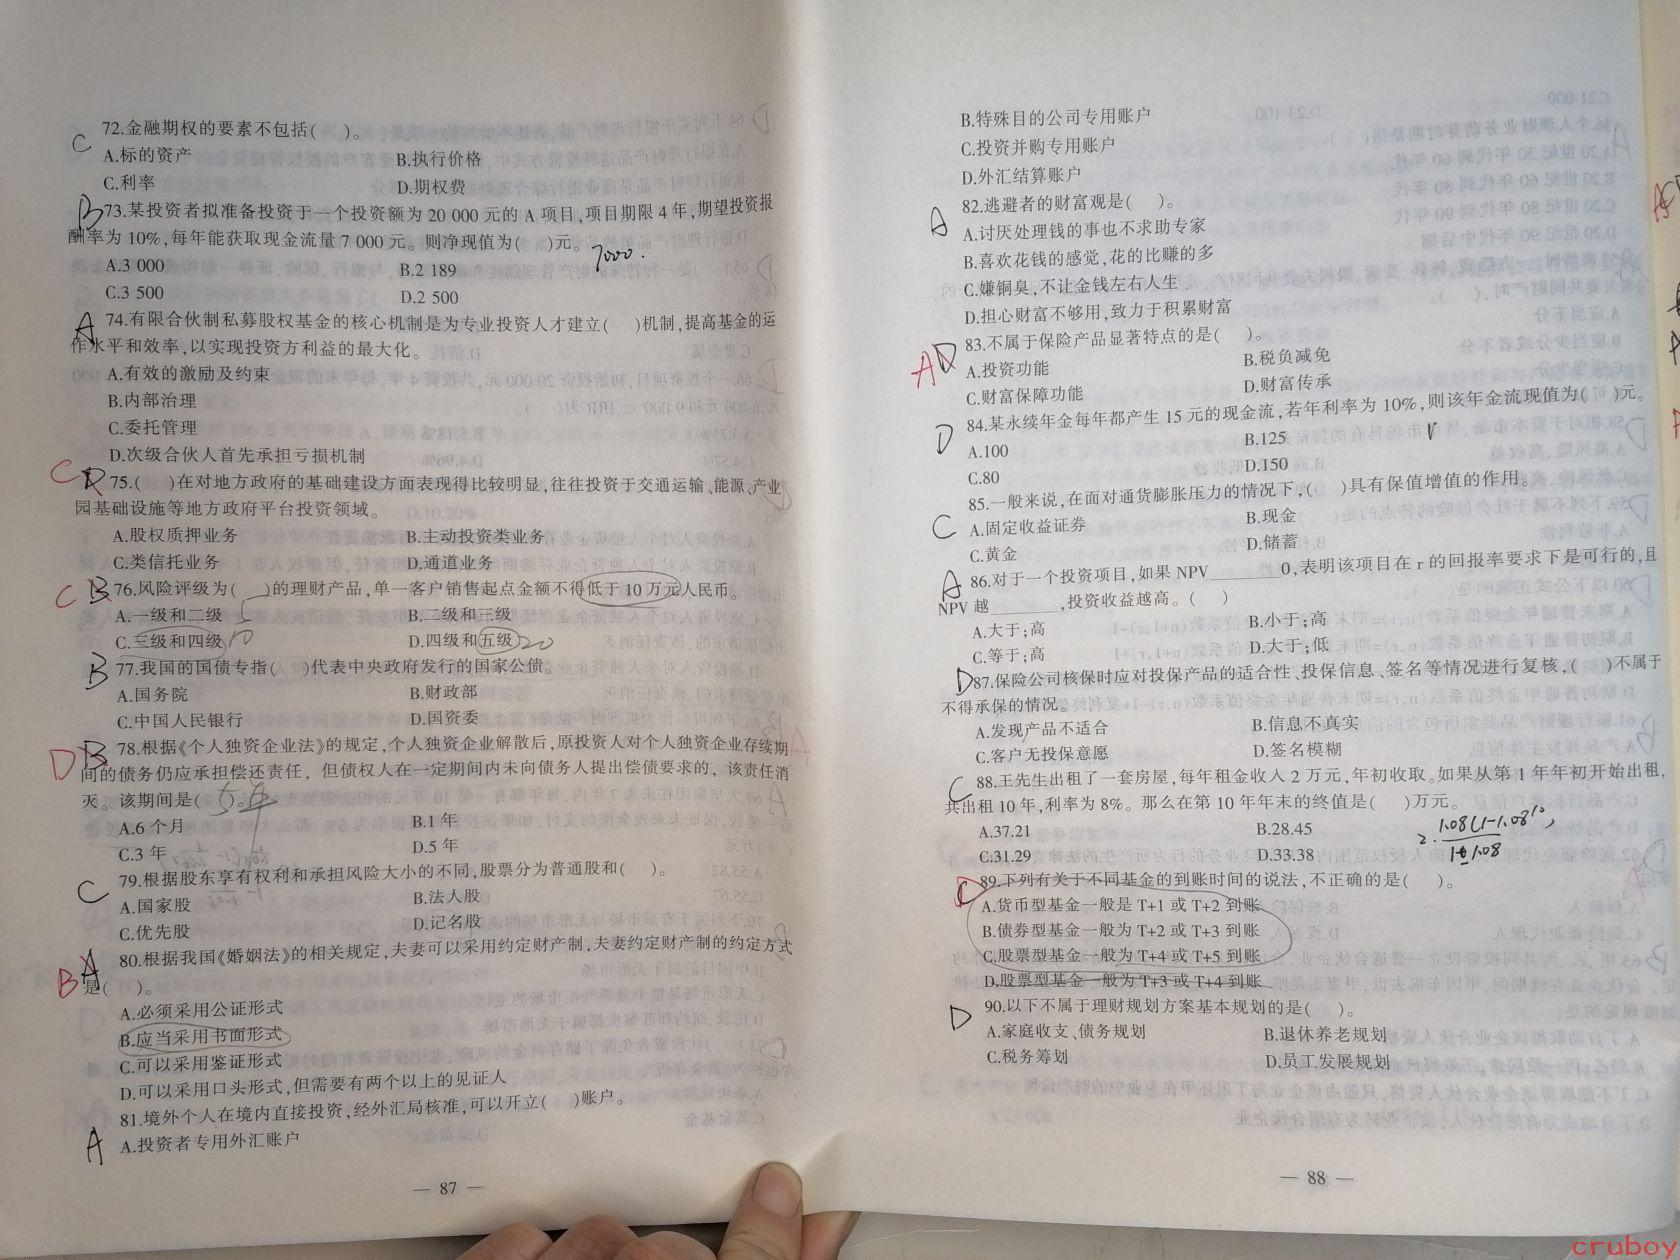 C 72.金融期权的要素不包括(　)。
A.标的资产　B.执行价格
C.利率　D.期权费
B 73.某投资者拟准备投资于一个投资额为 20 000 元的 A 项目,项目期限 4 年,期望投资报
酬率为 10%,每年能获取现金流量 7 000 元。则净现值为(　)元。 7000.
A.3 000　B.2 189
C.3 500　D.2 500
A 74.有限合伙制私募股权基金的核心机制是为专业投资人才建立(　)机制,提高基金的运
作水平和效率,以实现投资方利益的最大化。
A.有效的激励及约束
B.内部治理
C.委托管理
D.次级合伙人首先承担亏损机制
C 75.(　)在对地方政府的基础建设方面表现得比较明显,往往投资于交通运输、能源、产业
园基础设施等地方政府平台投资领域。
A.股权质押业务　B.主动投资类业务
C.类信托业务　D.通道业务
C B 76.风险评级为(　)的理财产品,单一客户销售起点金额不得低于 10 万元人民币。
A.一级和二级 5　B.二级和三级
C.三级和四级 10　D.四级和五级 20
B 77.我国的国债专指(　)代表中央政府发行的国家公债。
A.国务院　B.财政部
C.中国人民银行　D.国资委
D B 78.根据《个人独资企业法》的规定,个人独资企业解散后,原投资人对个人独资企业存续期
间的债务仍应承担偿还责任，但债权人在一定期间内未向债务人提出偿债要求的，该责任消
灭。该期间是(　)。 5年
A.6 个月　B.1 年
C.3 年　D.5 年
C 79.根据股东享有权利和承担风险大小的不同,股票分为普通股和(　)。
A.国家股　B.法人股
C.优先股　D.记名股
B A 80.根据我国《婚姻法》的相关规定,夫妻可以采用约定财产制,夫妻约定财产制的约定方式
是(　)。
A.必须采用公证形式
B.应当采用书面形式
C.可以采用鉴证形式
D.可以采用口头形式,但需要有两个以上的见证人
81.境外个人在境内直接投资,经外汇局核准,可以开立(　)账户。
A A.投资者专用外汇账户
— 87 —
B.特殊目的公司专用账户
C.投资并购专用账户
D.外汇结算账户
A 82.逃避者的财富观是(　)。
A.讨厌处理钱的事也不求助专家
B.喜欢花钱的感觉,花的比赚的多
C.嫌铜臭,不让金钱左右人生
D.担心财富不够用,致力于积累财富
A D 83.不属于保险产品显著特点的是(　)。
A.投资功能　B.税负减免
C.财富保障功能　D.财富传承
D 84.某永续年金每年都产生 15 元的现金流,若年利率为 10%,则该年金流现值为(　)元。
A.100　B.125
C.80　D.150
85.一般来说,在面对通货膨胀压力的情况下,(　)具有保值增值的作用。
C A.固定收益证券　B.现金
C.黄金　D.储蓄
A 86.对于一个投资项目,如果 NPV______0,表明该项目在 r 的回报率要求下是可行的,且
NPV 越______,投资收益越高。(　)
A.大于;高　B.小于;高
C.等于;高　D.大于;低
D 87.保险公司核保时应对投保产品的适合性、投保信息、签名等情况进行复核,(　)不属于
不得承保的情况。
A.发现产品不适合　B.信息不真实
C.客户无投保意愿　D.签名模糊
C 88.王先生出租了一套房屋,每年租金收入 2 万元,年初收取。如果从第 1 年年初开始出租,
共出租 10 年,利率为 8%。那么在第 10 年年末的终值是(　)万元。
A.37.21　B.28.45
C.31.29　D.33.38
89.下列有关于不同基金的到账时间的说法,不正确的是(　)。
A.货币型基金一般是 T+1 或 T+2 到账
B.债券型基金一般为 T+2 或 T+3 到账
C.股票型基金一般为 T+4 或 T+5 到账
D.股票型基金一般为 T+3 或 T+4 到账
D 90.以下不属于理财规划方案基本规划的是(　)。
A.家庭收支、债务规划　B.退休养老规划
C.税务筹划　D.员工发展规划
— 88 —
cruboy